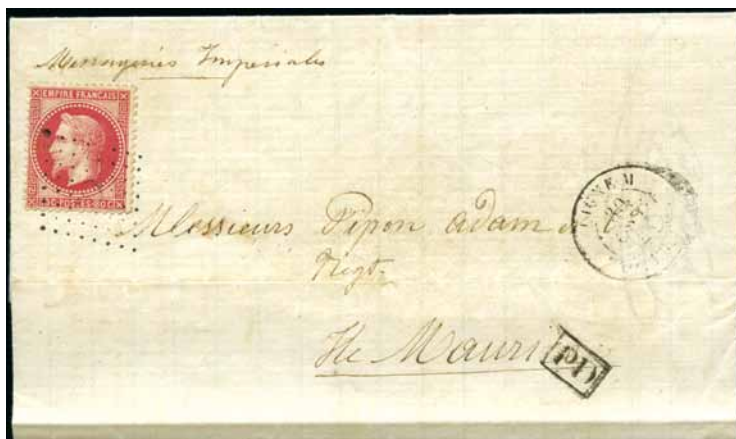 Messageries Imperiales
EMPIRE FRANÇAIS
80·C·POSTES·80·C
LIGNE
Messieurs Pipon adam
Ile Mauri
PD